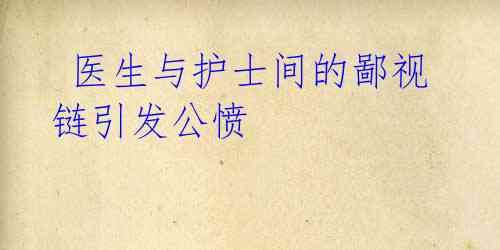 医生与护士间的鄙视
链引发公愤